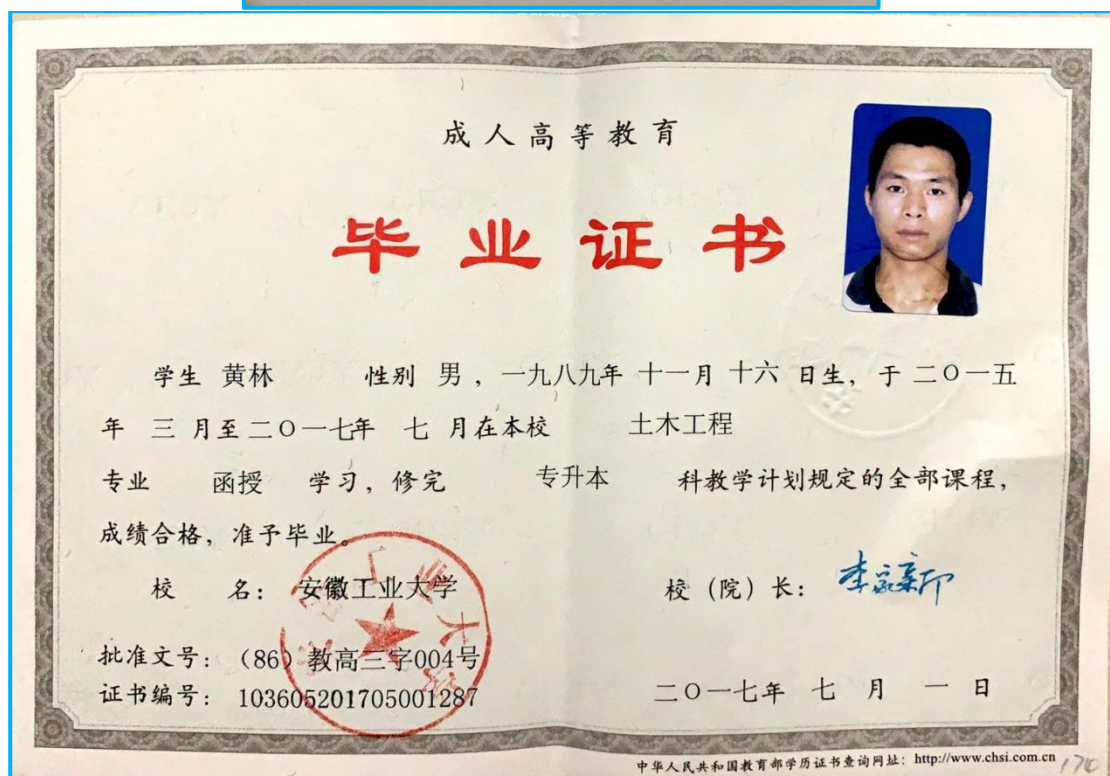 成人高等教育
毕业证书
学生 黄林 性别 男，一九八九年 十一月 十六 日生，于 二〇一五
年 三 月至 二〇一七年 七 月在本校 土木工程
专业 函授 学习，修完 专升本 科教学计划规定的全部课程，
成绩合格，准予毕业。
校 名： 安徽工业大学
校（院）长： 李家新
批准文号： （86）教高三字004号
证书编号： 103605201705001287
二〇一七年 七 月 一 日
中华人民共和国教育部学历证书查询网址：http://www.chsi.com.cn